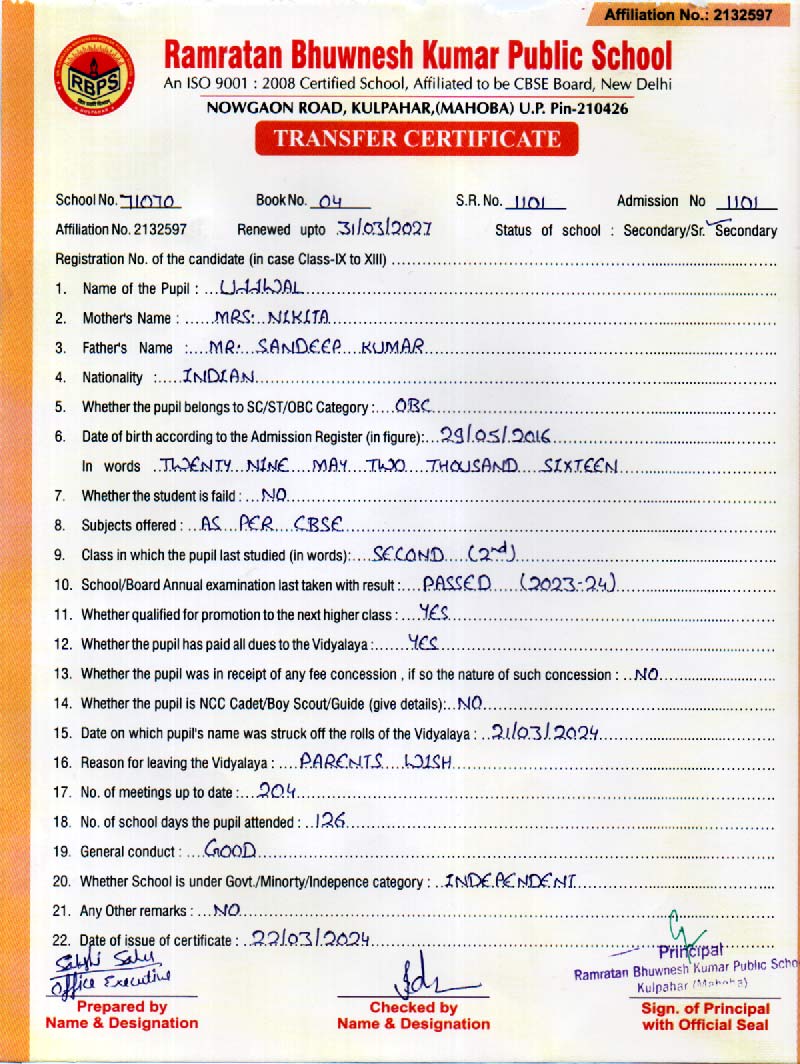 Affiliation No.: 2132597
RBPS
KULPAHAR
Ramratan Bhuwnesh Kumar Public School
An ISO 9001 : 2008 Certified School, Affiliated to be CBSE Board, New Delhi
NOWGAON ROAD, KULPAHAR,(MAHOBA) U.P. Pin-210426
TRANSFER CERTIFICATE
School No. 71070 Book No. 04 S.R. No. 1101 Admission No 1101
Affiliation No. 2132597 Renewed upto 31/03/2027 Status of school : Secondary/Sr. Secondary
Registration No. of the candidate (in case Class-IX to XIII)
1. Name of the Pupil : UJJWAL
2. Mother's Name : MRS. NIKITA
3. Father's Name : MR. SANDEEP KUMAR
4. Nationality : INDIAN
5. Whether the pupil belongs to SC/ST/OBC Category : OBC
6. Date of birth according to the Admission Register (in figure): 29/05/2016
In words TWENTY NINE MAY TWO THOUSAND SIXTEEN
7. Whether the student is faild : NO
8. Subjects offered : AS PER CBSE
9. Class in which the pupil last studied (in words): SECOND (2nd)
10. School/Board Annual examination last taken with result : PASSED (2023-24)
11. Whether qualified for promotion to the next higher class : YES
12. Whether the pupil has paid all dues to the Vidyalaya : YES
13. Whether the pupil was in receipt of any fee concession , if so the nature of such concession : NO
14. Whether the pupil is NCC Cadet/Boy Scout/Guide (give details): NO
15. Date on which pupil's name was struck off the rolls of the Vidyalaya : 21/03/2024
16. Reason for leaving the Vidyalaya : PARENTS WISH
17. No. of meetings up to date : 204
18. No. of school days the pupil attended : 126
19. General conduct : GOOD
20. Whether School is under Govt./Minorty/Indepence category : INDEPENDENT
21. Any Other remarks : NO
22. Date of issue of certificate : 22/03/2024
Office Executive
Principal
Ramratan Bhuwnesh Kumar Public Scho
Kulpahar (Mahoba)
Prepared by
Name & Designation
Checked by
Name & Designation
Sign. of Principal
with Official Seal